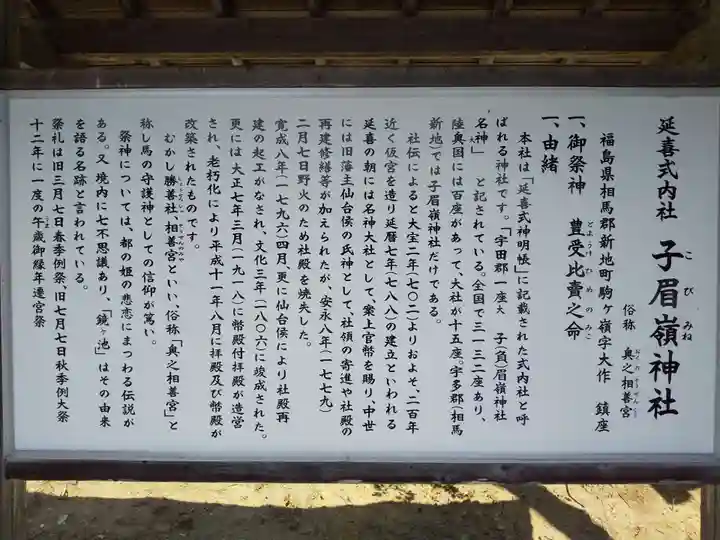 延喜式内社 子眉嶺神社
こびみね
俗称 奥之相善宮
おくのそうぜんぐう
福島県相馬郡新地町駒ヶ嶺字大作 鎮座
一、御祭神 豊受比賣之命
とようけひめのみこ
一、由緒
本社は「延喜式神明帳」に記載された式内社と呼
ばれる神社です。「宇田郡一座大 子(負)眉嶺神社
名神大」と記されている。全国で三一三二座あり、
陸奥国には百座があって、大社が十五座。宇多郡(相馬
新地)では子眉嶺神社だけである。
社伝によると大宝二年(七〇二)よりおよそ、二百年
近く仮宮を造り延暦七年(七八八)の建立といわれる
延喜の朝には名神大社として、案上官幣を賜り、中世
には旧藩主仙台侯の氏神として、社領の寄進や社殿の
再建修繕等が加えられたが、安永八年(一七七九)
二月七日野火のため社殿を焼失した。
寛成八年(一七九六)四月、更に仙台侯により社殿再
建の起工がなされ、文化三年(一八〇六)に竣成された。
更には大正七年三月(一九一八)に幣殿付拝殿が造営
され、老朽化により平成十一年八月に拝殿及び幣殿が
改築されたものです。
むかし勝善社、相善宮といい、俗称「奥之相善宮」と
称し馬の守護神としての信仰が篤い。
祭神については、都の姫の悲恋にまつわる伝説が
ある。又、境内に七不思議あり、「鏡ヶ池」はその由来
を語る名跡と言われている。
祭礼は旧三月七日春季例祭、旧七月七日秋季例大祭
十二年に一度の午歳御縁年遷宮祭